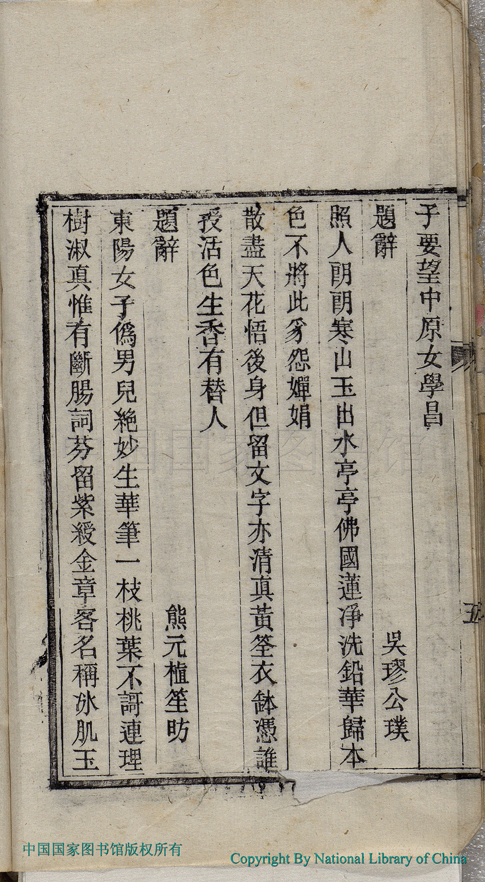 子要望中原女學昌
題辭　吳璆公璞
照人朗朗寒山玉出水亭亭佛國蓮淨洗鉛華歸本
色不將此豸怨嬋娟
散盡天花悟後身但留文字亦清真黃筌衣缽憑誰
授活色生香有替人
題辭　熊元植笙昉
東陽女子僞男兒絶妙生華筆一枝桃葉不謌連理
樹淑真惟有斷腸詞芬留紫綬金章客名稱冰肌玉
五
中国国家图书馆版权所有
Copyright By National Library of China